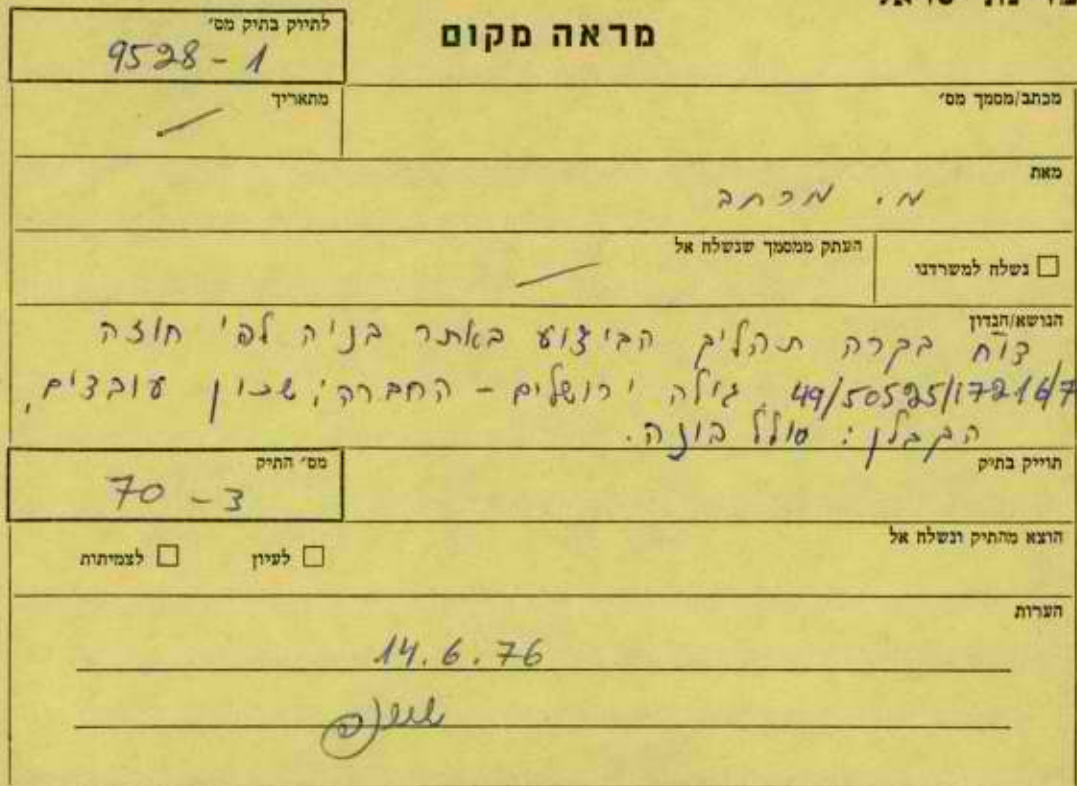 לתיוק בתיק מס׳
9528 - 1
מראה מקום
מתאריך
מכתב/מסמך מס׳
מאת
מ. מרחב
העתק ממסמך שנשלח אל
נשלח למשרדנו
הנושא/הנדון
דוח בקרה תהליך הביצוע באתר בניה לפי חוזה
49/50525/17216/7 גילה ירושלים - החברה: שכון עובדים,
הקבלן: סולל בונה.
מס׳ התיק
70 - צ
תוייק בתיק
הוצא מהתיק ונשלח אל
לעיון
לצמיתות
הערות
14.6.76